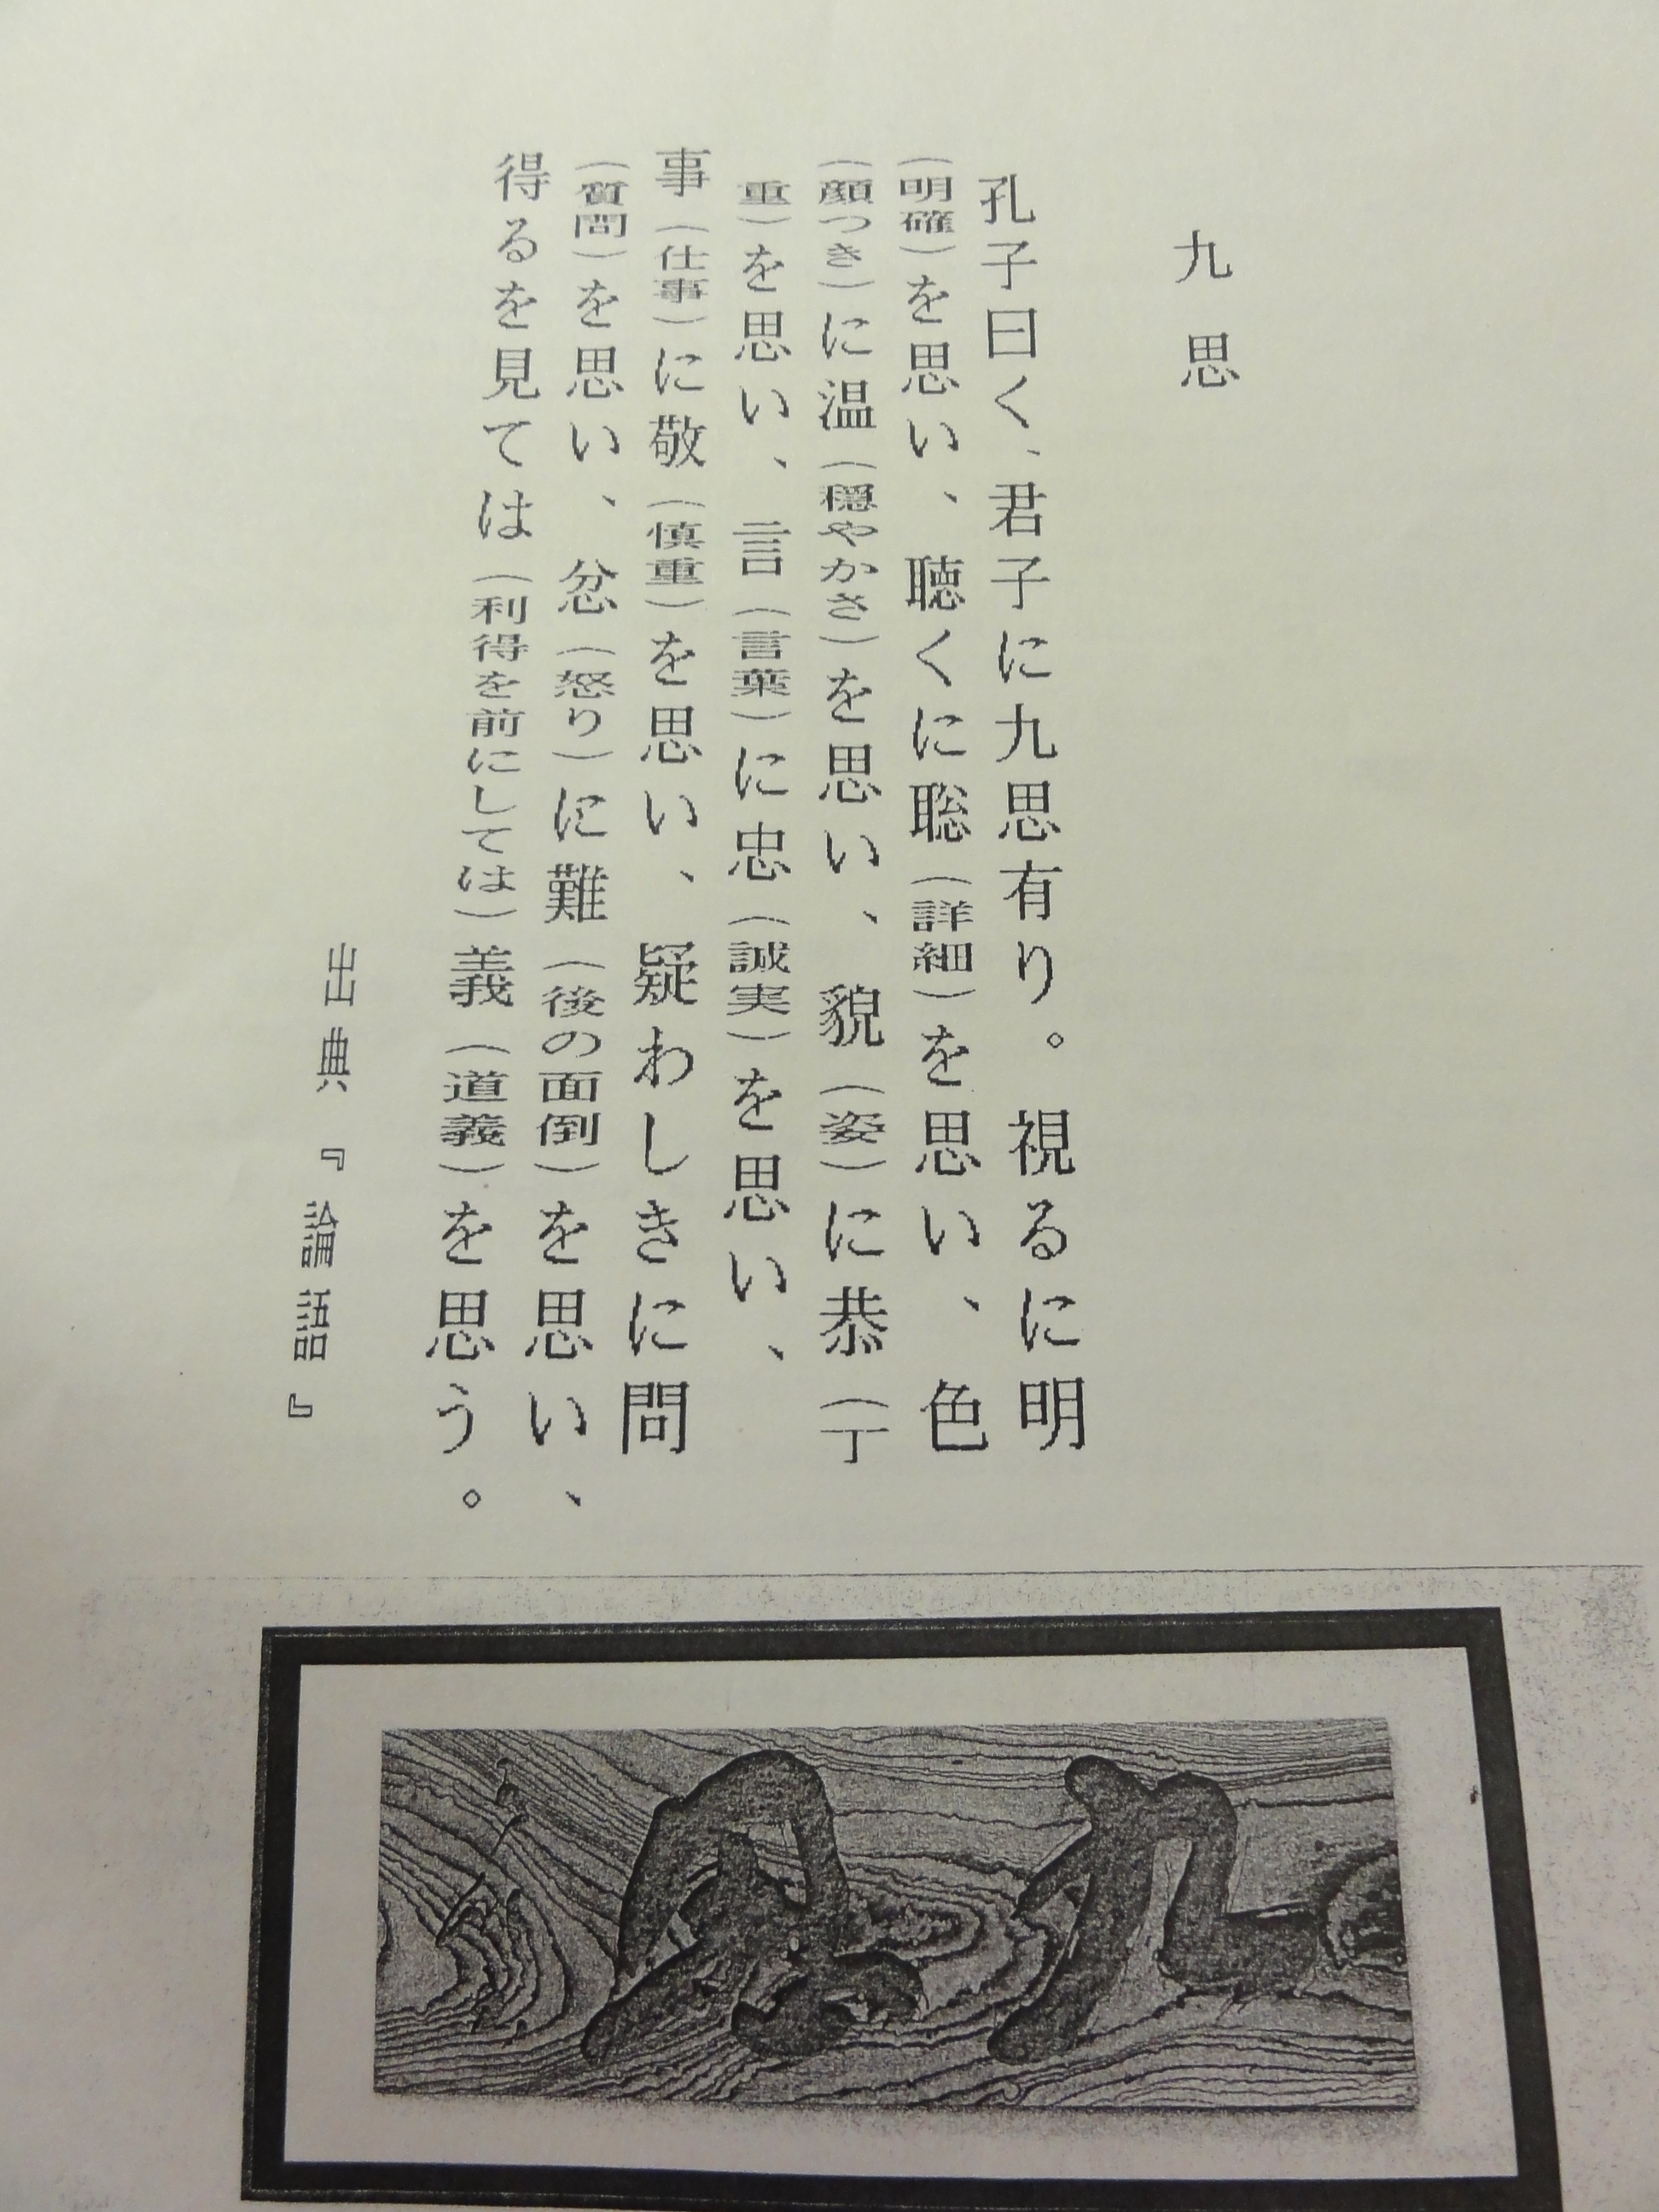 九思
孔子曰く、君子に九思有り。視るに明
（明確）を思い、聴くに聡（詳細）を思い、色
（顔つき）に温（穏やかさ）を思い、貌（姿）に恭（丁
重）を思い、言（言葉）に忠（誠実）を思い、
事（仕事）に敬（慎重）を思い、疑わしきに問
（質問）を思い、忿（怒り）に難（後の面倒）を思い、
得るを見ては（利得を前にしては）義（道義）を思う。
出典『論語』
九思